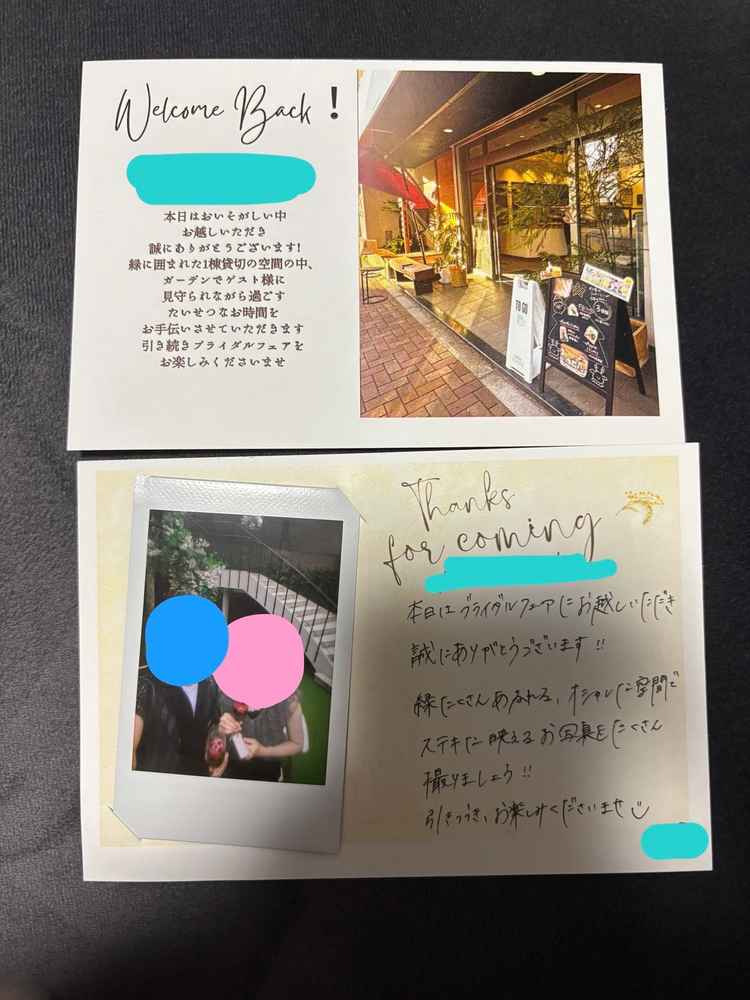 Welcome Back!
本日はおいそがしい中
お越しいただき
誠にありがとうございます!
緑に囲まれた1棟貸切の空間の中、
ガーデンでゲスト様に
見守られながら過ごす
たいせつなお時間を
お手伝いさせていただきます
引き続きブライダルフェアを
お楽しみくださいませ
TO GO
Thanks
for coming
本日はブライダルフェアにお越しいただき
誠にありがとうございます!!
緑たくさんあふれる、オシャレな空間で
ステキに映えるお写真をたくさん
撮りましょう!!
引きつづき、お楽しみくださいませ